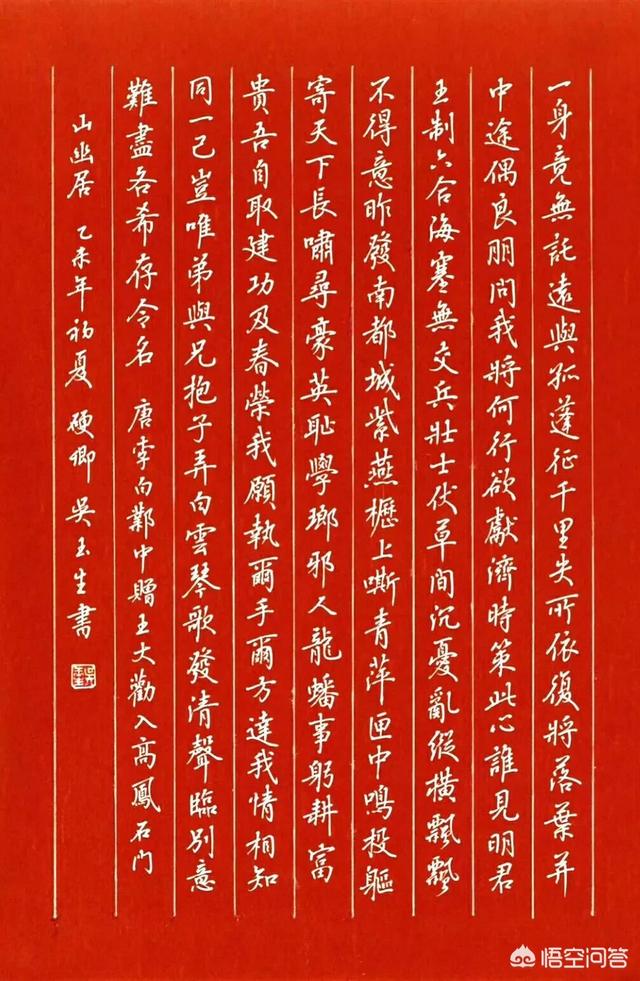 一身竟無託遠與孤蓬征千里失所依復將落葉并
中途偶良朋問我將何行欲獻濟時策此心誰見明君
王制六合海塞無交兵壯士伏草間沉憂亂縱橫飄飄
不得意昨發南都城紫燕櫪上嘶青萍匣中鳴投軀
寄天下長嘯尋豪英恥學瑯邪人龍蟠事躬耕富
貴吾自取建功及春榮我願執爾手爾方達我情相知
同一己豈唯弟與兄抱子弄白雲琴歌發清聲臨別意
難盡各希存令名 唐李白鄴中贈王大勸入高鳳石門
山幽居 乙未年初夏 硬卿 吳玉生書
悟空问答